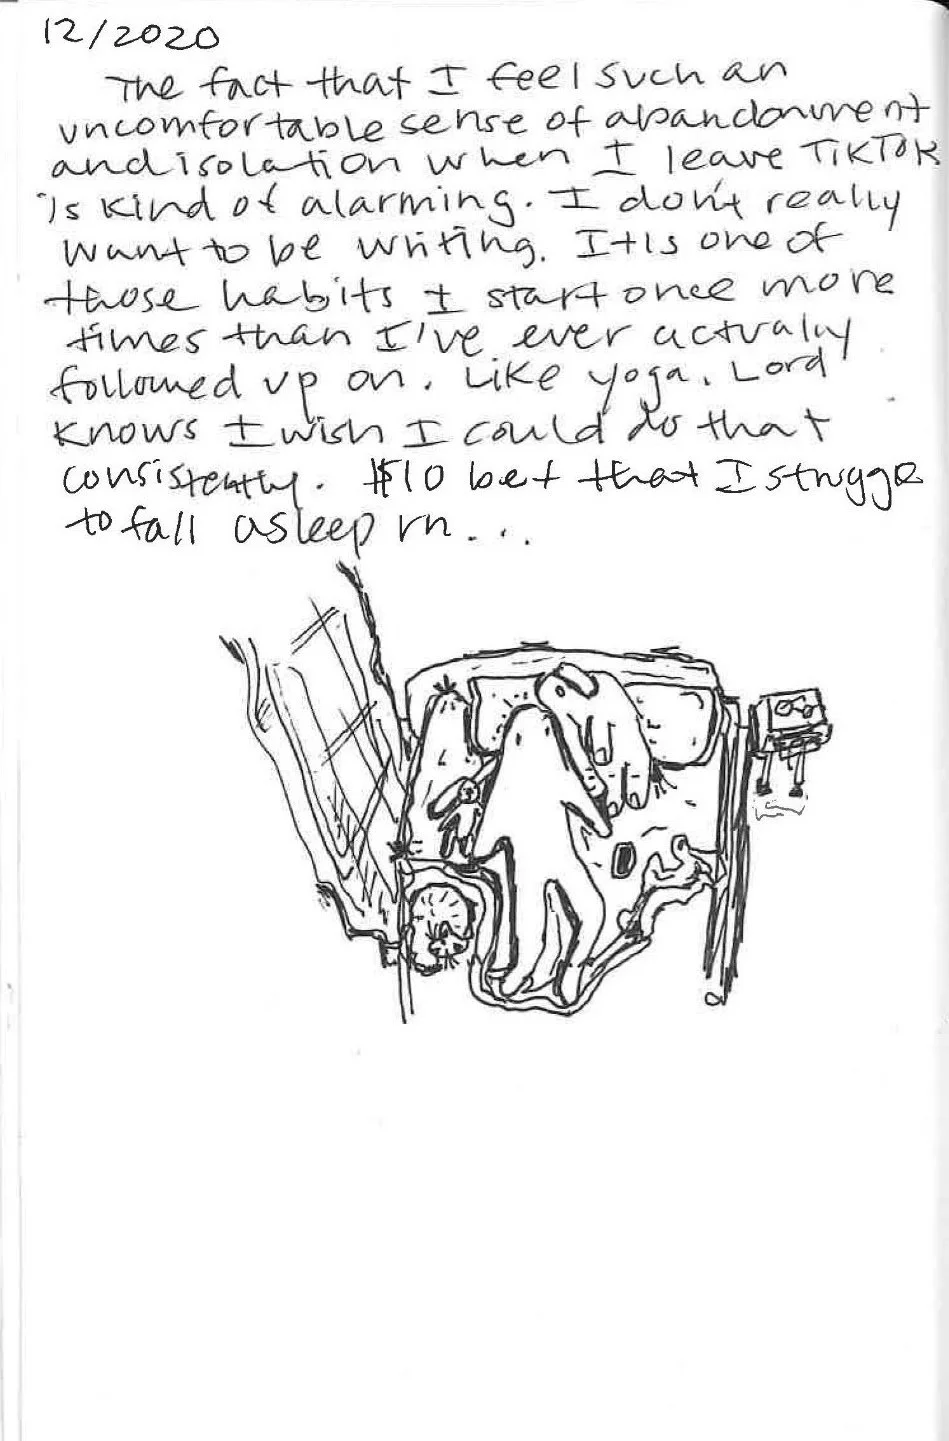 12/2020
The fact that I feel such an
uncomfortable sense of abandonment
and isolation when I leave TikTok
is kind of alarming. I don't really
want to be writing. It is one of
those habits I start once more
times than I've ever actualy
followed up on. Like yoga. Lord
knows I wish I could do that
consistently. $10 bet that I struggle
to fall asleep rn...